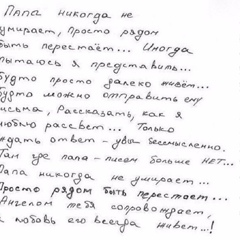 Папа никогда не
умирает, просто рядом
быть перестаёт... Иногда
пытаюсь я представить...
будто просто далеко живёт...
будто можно отправить ему
письма, Рассказать, как я
люблю рассвет... Только
ждать ответ - увы бессмысленно.
Там где папа - писем больше НЕТ...
Папа никогда не умирает...
Просто рядом быть перестаёт...
Ангелом тебя сопровождает,
а любовь его всегда живёт...!